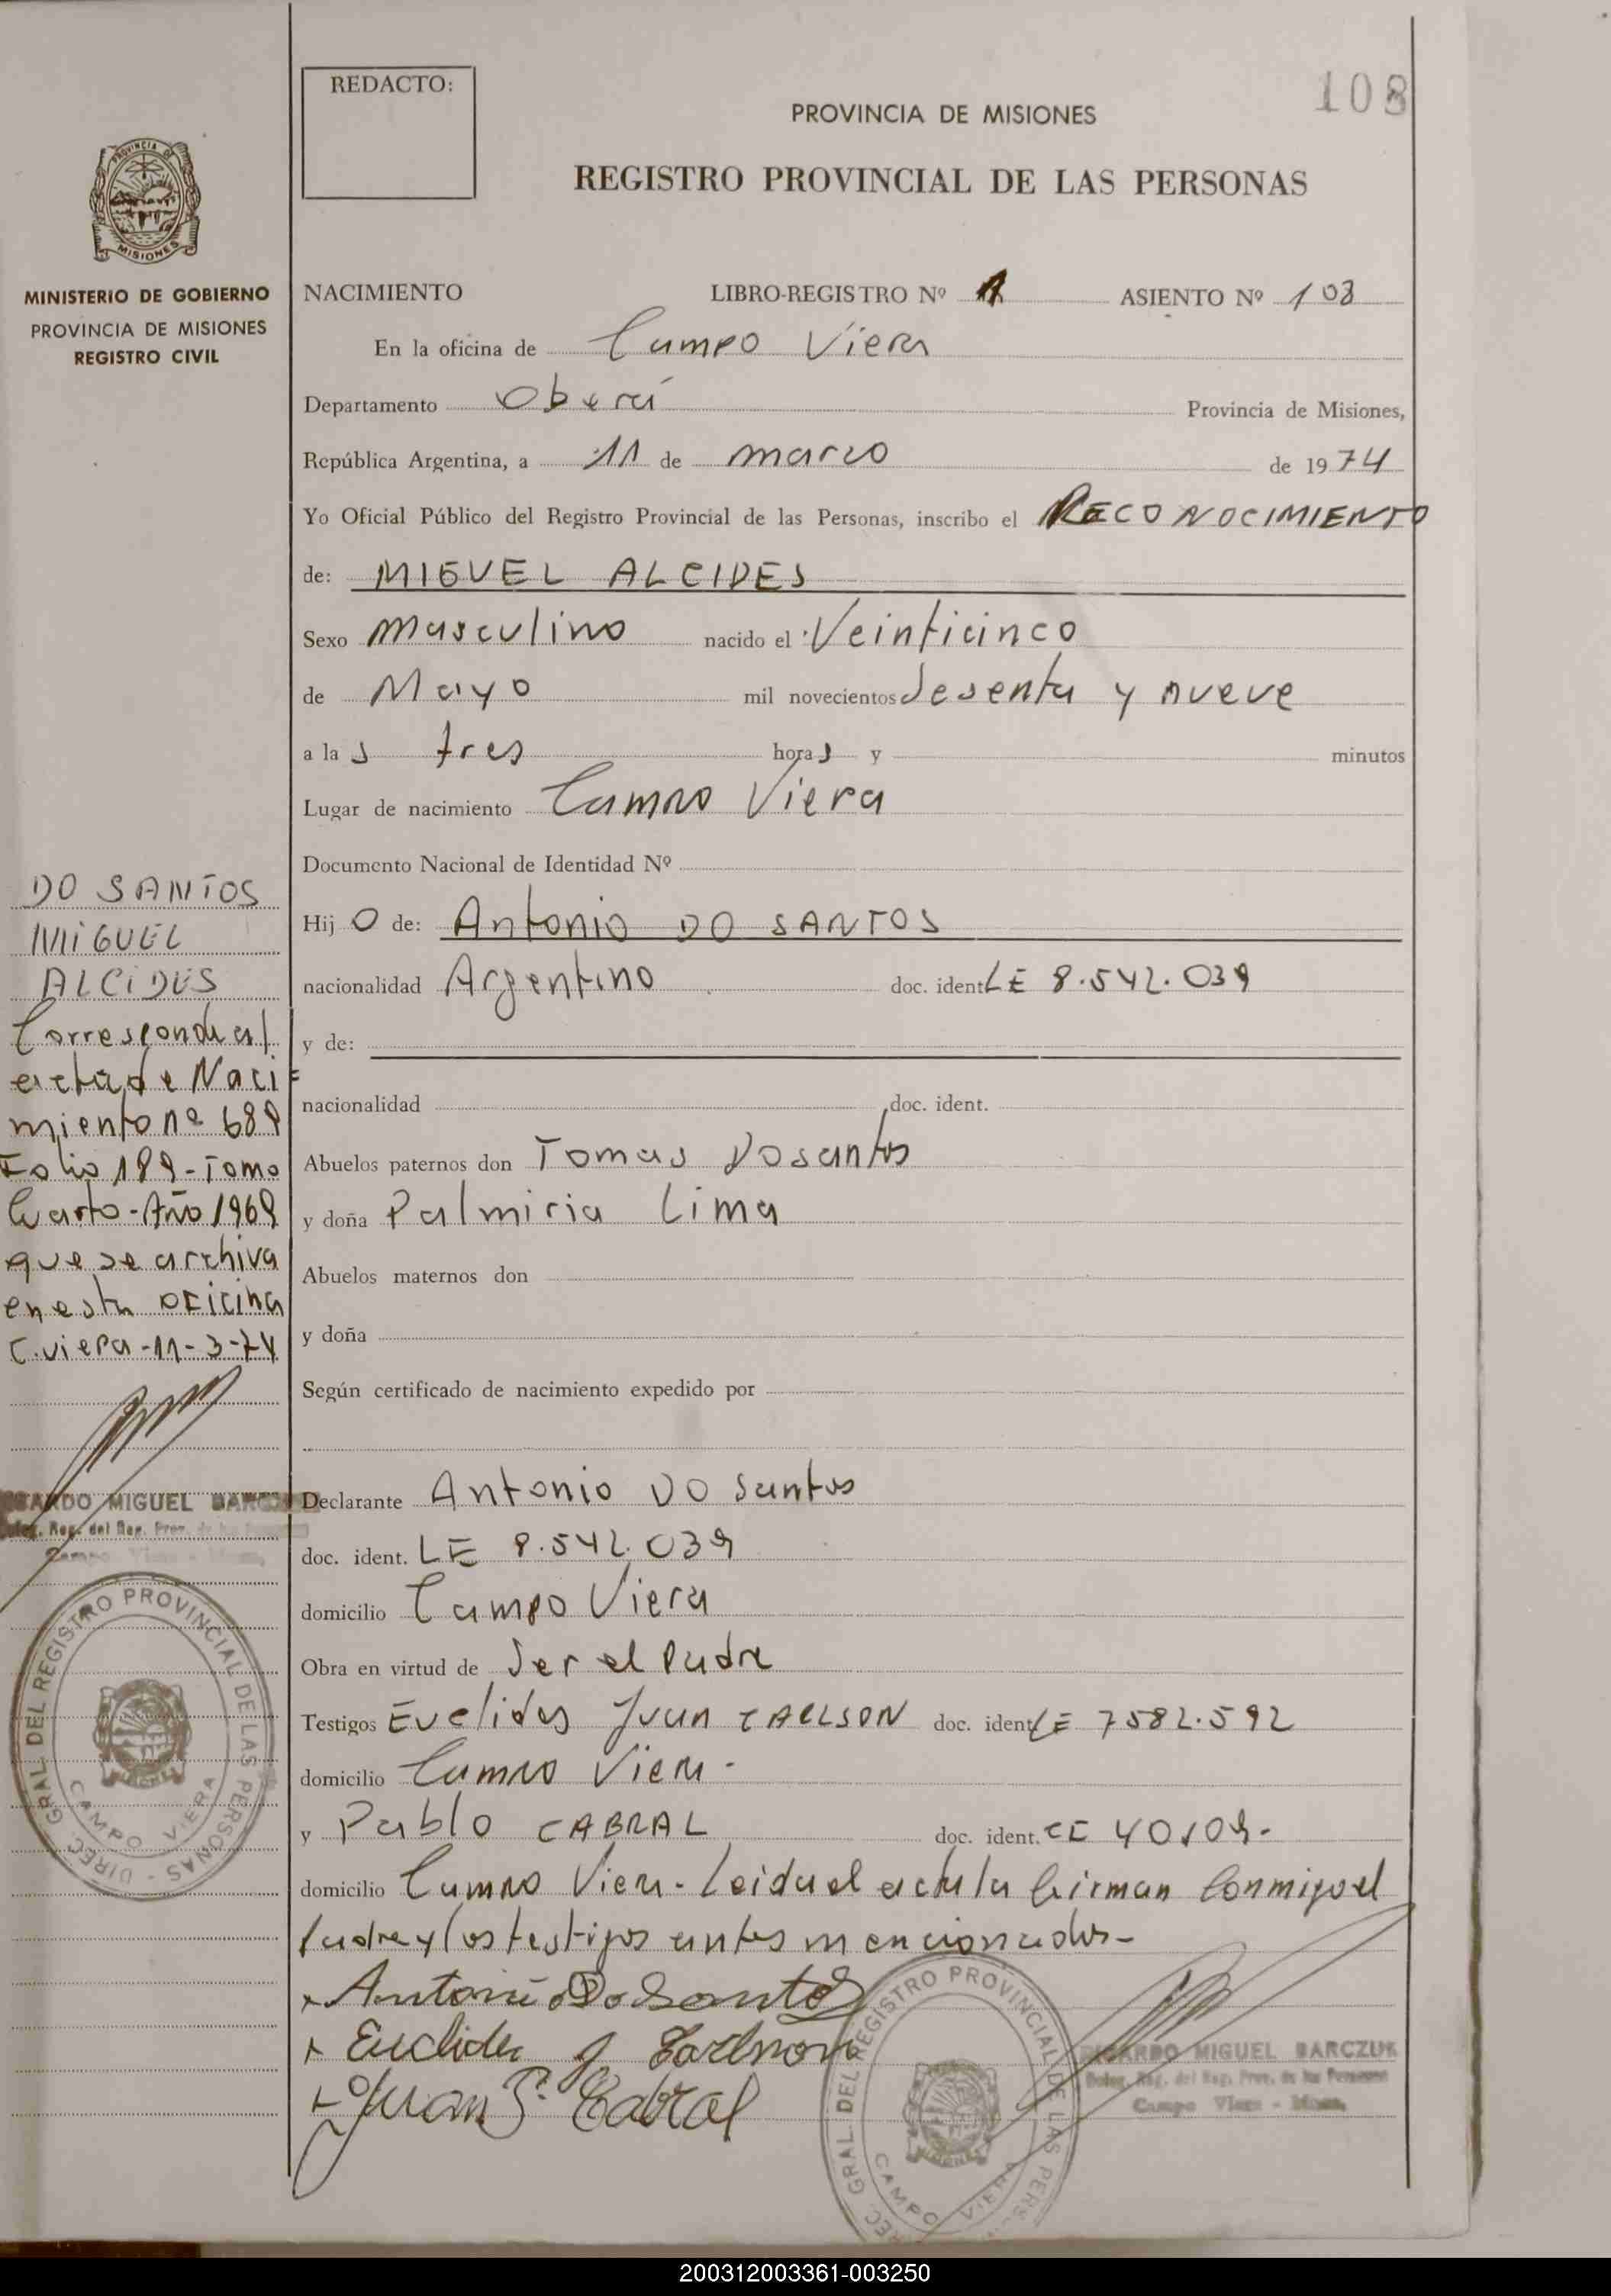 REDACTO:
108
PROVINCIA DE MISIONES
REGISTRO PROVINCIAL DE LAS PERSONAS
PROVINCIA DE
MISIONES
MINISTERIO DE GOBIERNO
PROVINCIA DE MISIONES
REGISTRO CIVIL
NACIMIENTO LIBRO-REGISTRO Nº 1 ASIENTO Nº 108
En la oficina de Campo Viera
Departamento Oberá Provincia de Misiones,
República Argentina, a 11 de marzo de 1974
Yo Oficial Público del Registro Provincial de las Personas, inscribo el RECONOCIMIENTO
de: MIGUEL ALCIDES
Sexo Masculino nacido el Veinticinco
de Mayo mil novecientos sesenta y nueve
a las tres horas y minutos
Lugar de nacimiento Campo Viera
Documento Nacional de Identidad Nº
Hijo de: Antonio DO SANTOS
nacionalidad Argentino doc. ident. LE 8.542.039
y de:
nacionalidad doc. ident.
Abuelos paternos don Tomas Dosantos
y doña Palmiria Lima
Abuelos maternos don
y doña
Según certificado de nacimiento expedido por
Declarante Antonio DO Santos
doc. ident. LE 8.542.039
domicilio Campo Viera
Obra en virtud de Ser el Padre
Testigos Euclides Juan CARLSON doc. ident. LE 7582.592
domicilio Campo Viera-
y Pablo CABRAL doc. ident. CE 40109-
domicilio Campo Viera- Leida el acta la firman Conmigo el
Padre y los testigos antes mencionados-
Antonio Do Santos
Euclides J Carlson
Juan P. Cabral
DO SANTOS
MIGUEL
ALCIDES
Corresponde al
acta de Naci
miento nº 689
Folio 189-Tomo
Cuarto-Año 1969
que se archiva
en esta oficina
C.viera-11-3-74
RICARDO MIGUEL BARCZUK
Deleg. Reg. del Reg. Prov. de las Personas
Campo Viera - Mnes.
DIREC. GRAL. DEL REGISTRO PROVINCIAL DE LAS PERSONAS
CAMPO VIERA
DIREC. GRAL. DEL REGISTRO PROVINCIAL DE LAS PERS
CAMPO VIERA
RICARDO MIGUEL BARCZUK
Deleg. Reg. del Reg. Prov. de las Personas
Campo Viera - Mnes.
200312003361-003250